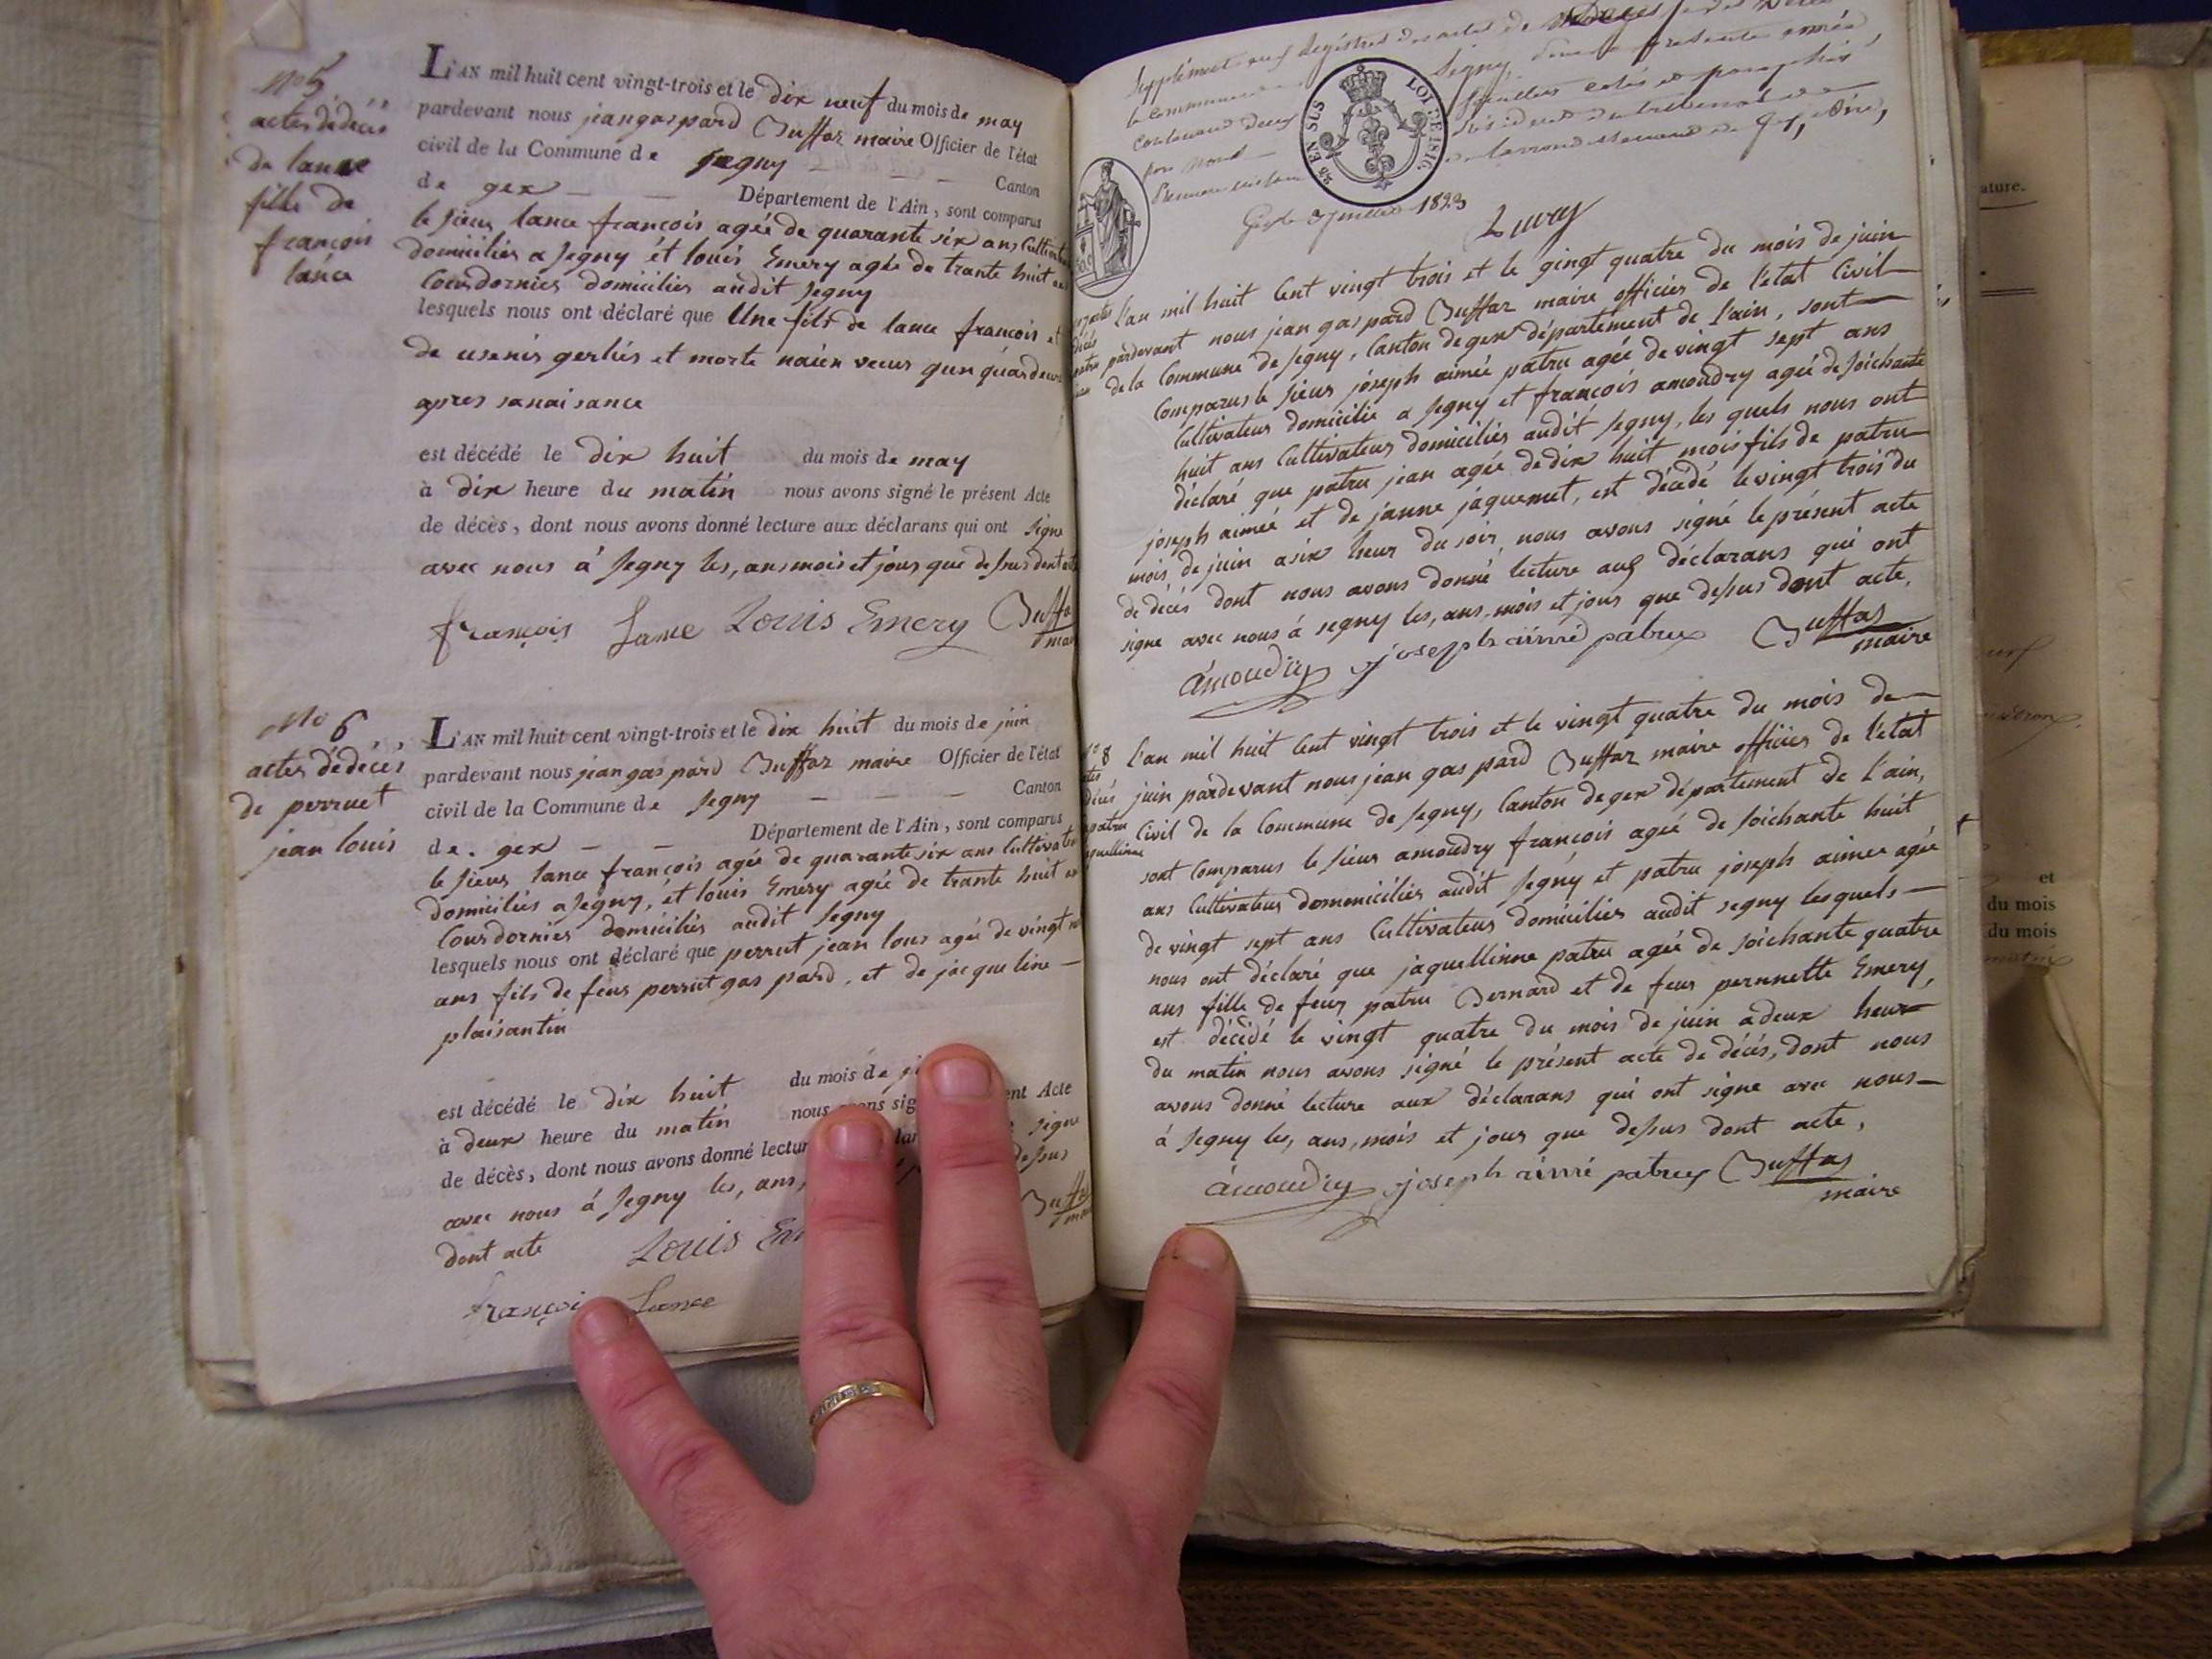 No 5
actes dédécés
de lance
fille de
françois
lance
L'AN mil huit cent vingt-trois et le dix neuf du mois de may
pardevant nous jean gaspard Buffaz maire Officier de l'état
civil de la Commune de segny Canton
de gex Département de l'Ain, sont comparus
le sieur lance françois agée de quarante six ans
domiciliés a segny et louis Emery agée de trante huit
Courdornier domiciliés audit segny
lesquels nous ont déclaré que Une fils de lance françois et
de
apres sanaisance
est décédé le dix huit du mois de may
à dix heure du matin nous avons signé le présent Acte
de décès, dont nous avons donné lecture aux déclarans qui ont signe
avec nous à segny les, ans mois et jours que dessus dont
françois Lance Louis Emery Buffa
No 6
actes dédécés
de perruet
jean louis
L'AN mil huit cent vingt-trois et le dix huit du mois de juin
pardevant nous jean gaspard Buffaz maire Officier de l'état
civil de la Commune de segny Canton
de gex Département de l'Ain, sont comparus
le sieur lance françois agée de quarante six ans
domiciliés a segny, et louis Emery agée de trante huit
Courdornier domiciliés audit segny
lesquels nous ont déclaré que perrut jean louis agée de vingt
ans fils de feus perrut gaspard, et de jacqueline
plaisantin
est décédé le dix huit du mois de
à deux heure du matin nous
de décès, dont nous avons donné lectur signe
avec nous à segny les, ans, dessus
dont acte
Louis
françois Lance
Supplément aux Registres
la commune Segny
contenant deux feuillets cotés et paraphés
par nous
de l'arrondissement de Gex,
25 EN SUS
LOI DE 1816
1823
l'an mil huit cent vingt trois et le gingt quatre du mois de juin
pardevant nous jean gaspard Buffaz maire officier de l'état civil
de la Commune de segny, canton de gex département de l'ain, sont
comparus le sieur joseph aimée patru agée de vingt sept ans
cultivateur domicilié a segny et françois amoudry agée de soichante
huit ans cultivateur domiciliés audit segny, les quels nous ont
déclaré que patru jean agée de dix huit mois fils de patru
joseph aimeé et de janne jaquemet, est décédé le vingt trois du
mois de juin a six heur du soir, nous avons signé le présent acte
de décés dont nous avons donné lecture aux déclarans qui ont
signe avec nous à segny les, ans, mois et jour que dessus dont acte.
Amoudry joseph aimé patru Buffaz
maire
8
l'an mil huit cent vingt trois et le vingt quatre du mois de
juin pardevant nous jean gaspard Buffaz maire officier de l'état
civil de la commune de segny, canton de gex département de l'ain,
sont comparus le sieur amoudry françois agée de soichante huit
ans cultivateur domenicilies audit segny et patru joseph aimee agée
de vingt sept ans cultivateur domicilies audit segny lesquels
nous ont déclaré que jaquellinne patru agée de soichante quatre
ans fille de feus patru Bernard et de feus pernnette Emery,
est décédé le vingt quatre du mois de juin a deux heur
du matin nous avons signé le présent acte de décés, dont nous
avons donné lecture aux déclarans qui ont signe avec nous
à segny les, ans, mois et jour que dessus dont acte,
Amoudry joseph aimé patru Buffaz
maire
ature.
et
du mois
du mois